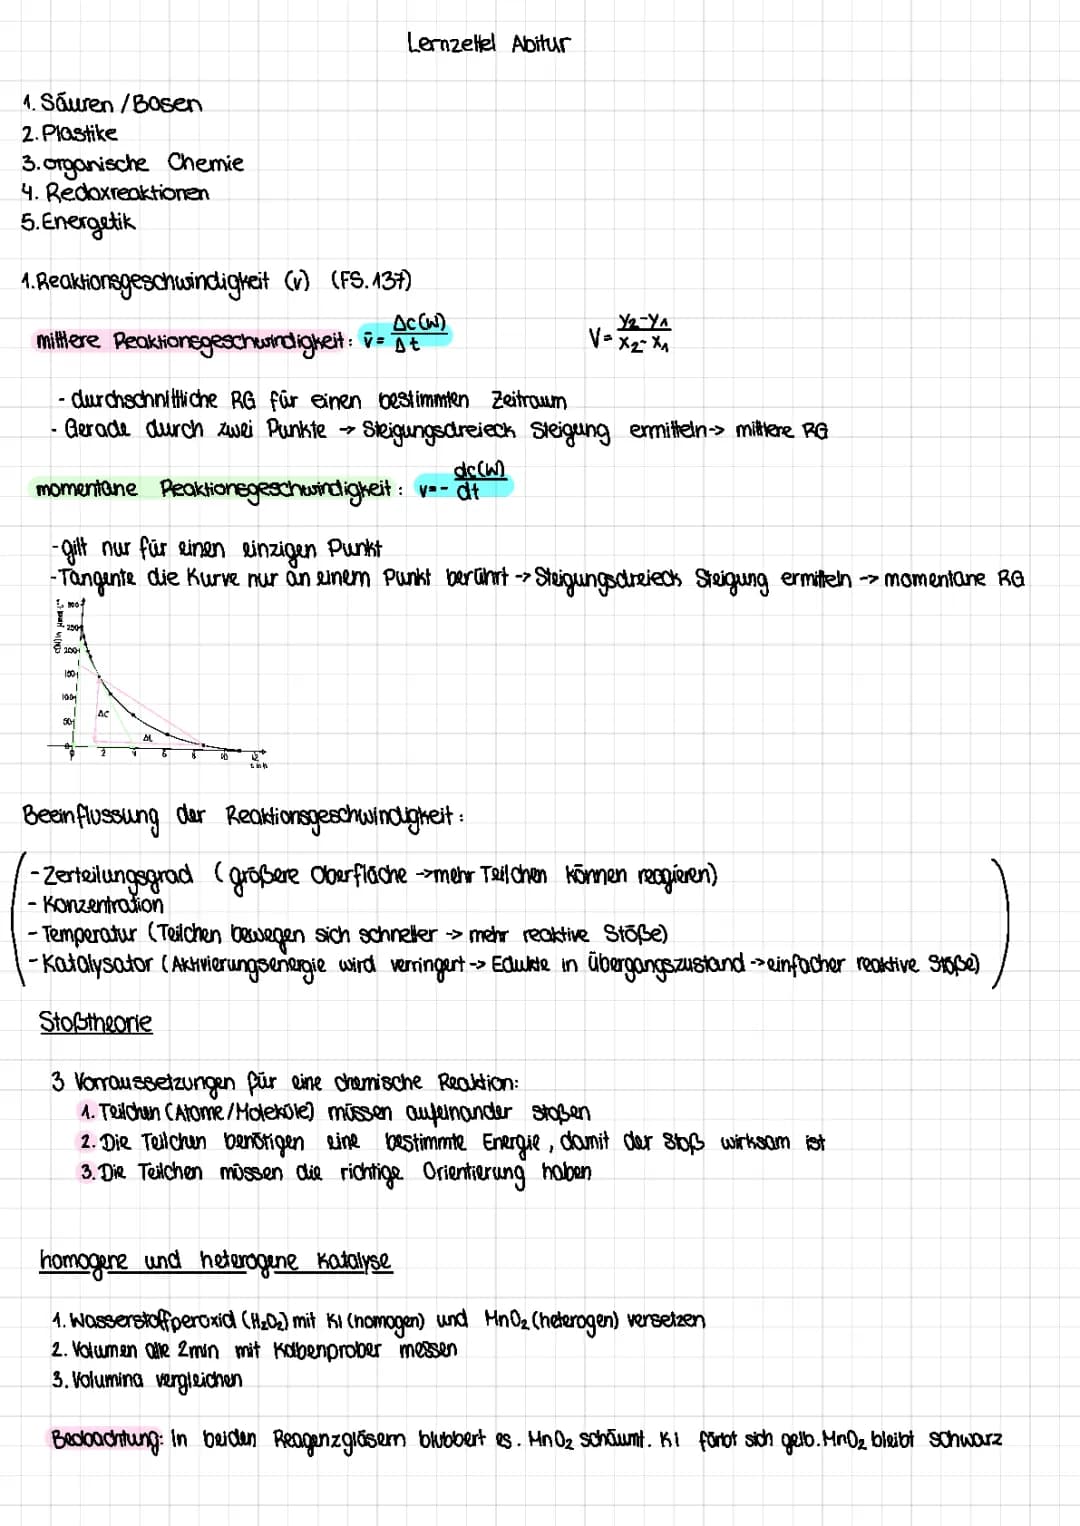 Lernzettel Abitur
1. Säuren / Basen
2. Plastike
3. organische Chemie
4. Redoxreaktionen
5. Energetik
1. Reaktionsgeschwindigkeit (v) (FS. 137)
mittlere Reaktionsgeschwindigkeit: v̄ = Δc(W) / Δt   V = y₂-y₁ / x₂-x₁
- durchschnittliche RG für einen bestimmten Zeitraum
- Gerade durch zwei Punkte → Steigungsdreieck Steigung ermitteln -> mittlere RG
momentane Reaktionsgeschwindigkeit: v = - dc(W) / dt
- gilt nur für einen einzigen Punkt
- Tangente die Kurve nur an einem Punkt berührt -> Steigungsdreieck Steigung ermitteln -> momentane RG
300
250
200
150
100
50
0
Δc
Δt
0 2 4 6 8 10 12
t in h
Beeinflussung der Reaktionsgeschwindigkeit:
- Zerteilungsgrad (größere Oberfläche -> mehr Teilchen können reagieren)
- Konzentration
- Temperatur (Teilchen bewegen sich schneller -> mehr reaktive Stöße)
- Katalysator (Aktivierungsenergie wird verringert -> Edukte in Übergangszustand -> einfacher reaktive Stöße)
Stoßtheorie
3 Vorraussetzungen für eine chemische Reaktion:
1. Teilchen (Atome / Moleküle) müssen aufeinander stoßen
2. Die Teilchen benötigen eine bestimmte Energie, damit der Stoß wirksam ist
3. Die Teilchen müssen die richtige Orientierung haben
homogene und heterogene Katalyse
1. Wasserstoffperoxid (H₂O₂) mit KI (homogen) und MnO₂ (heterogen) versetzen
2. Volumen alle 2min mit Kolbenprober messen
3. Volumina vergleichen
Beobachtung: In beiden Reagenzgläsern blubbert es. MnO₂ schäumt. KI färbt sich gelb. MnO₂ bleibt schwarz